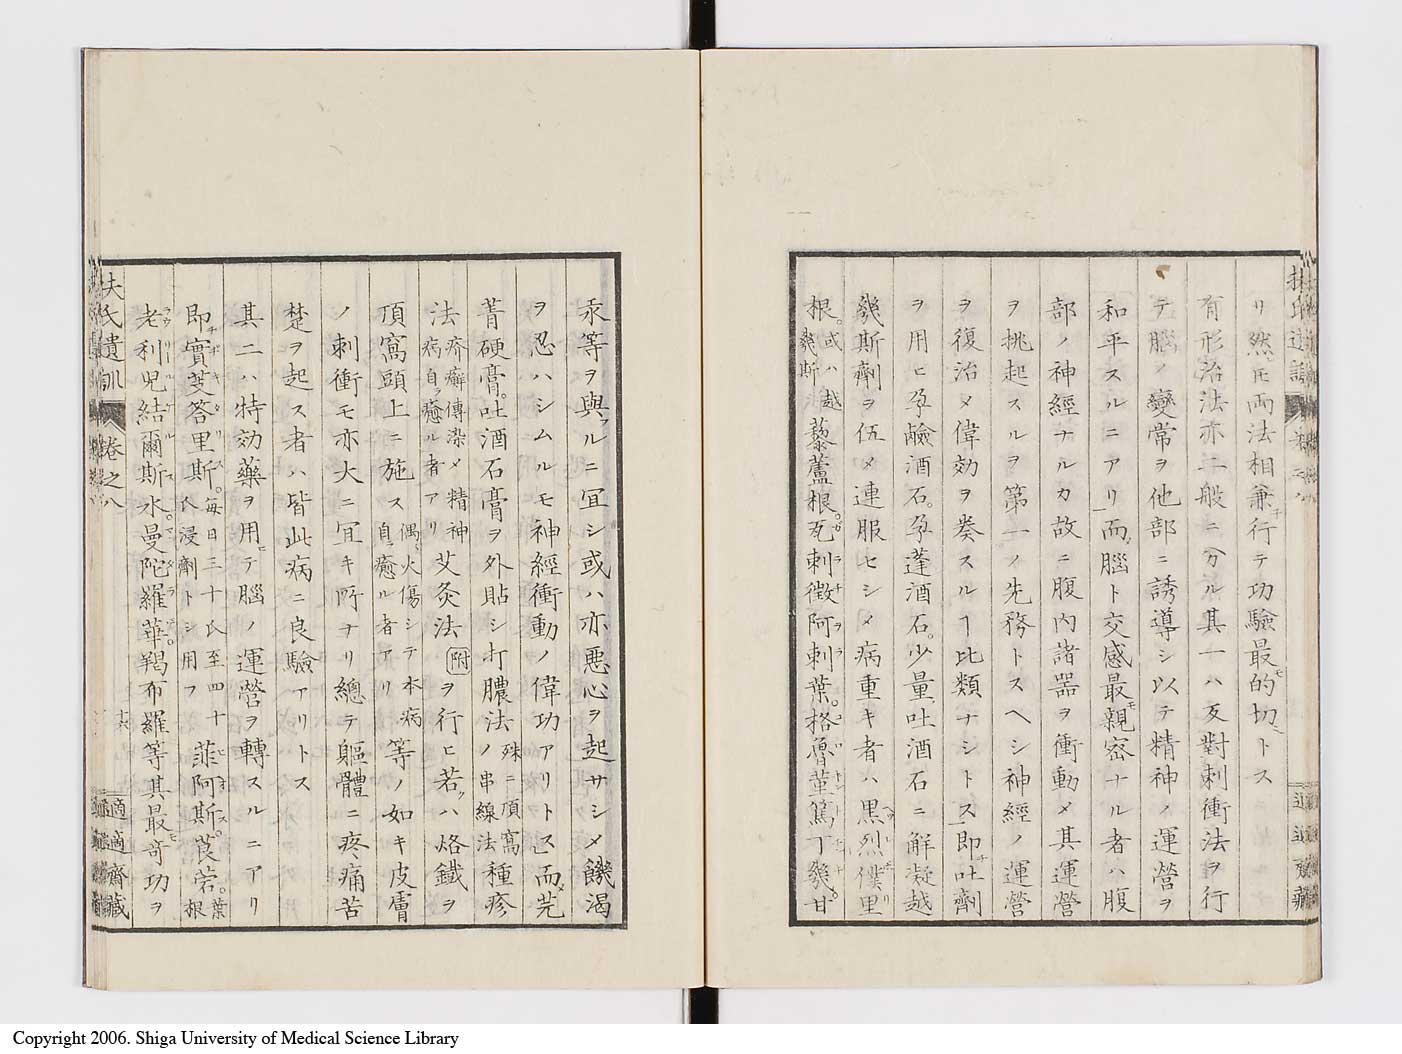 リ然𪜈両法相兼行テ功驗最的切トス
有形治法亦二般ニ分ル其一ハ反對刺衝法ヲ行
テ腦ノ變常ヲ他部ニ誘導シ以テ精神ノ運營ヲ
和平スルニアリ而腦ト交感最親密ナル者ハ腹
部ノ神經ナルカ故ニ腹内諸器ヲ衝動メ其運營
ヲ挑起スルヲ第一ノ先務トスヘシ神經ノ運營
ヲ復治メ偉効ヲ奏スルヿ比類ナシトス即吐劑
ヲ用ヒ孕鹼酒石。孕蓬酒石。少量吐酒石ニ解凝越
幾斯劑ヲ伍メ連服セシメ病重キ者ハ黒烈僕里
根。或ハ越幾斯藜蘆根。瓦刺徴阿刺葉。格魯菫篤丁幾。甘
汞等ヲ與フルニ冝シ或ハ亦惡心ヲ起サシメ饑渇
ヲ忍ハシムルモ神經衝動ノ偉功アリトス而芫
菁硬膏。吐酒石膏ヲ外貼シ打膿法ノ串線法種疹
殊ニ頂窩
法疥癬傳染メ精神病自ラ癒ル者アリ艾灸法附ヲ行ヒ若クハ烙鐵ヲ
頂窩頭上ニ施ス偶火傷シテ本病自ラ癒ル者アリ等ノ如キ皮膚
ノ刺衝モ亦大ニ冝キ所ナリ總テ軀體ニ疼痛苦
楚ヲ起ス者ハ皆此病ニ良驗アリトス
其二ハ特効藥ヲ用テ腦ノ運營ヲ轉スルニアリ
即實芰答里斯。毎日三十氏至四十氏浸劑トシ用フ菲阿斯。莨菪。葉根
老利児結爾斯水。曼陀羅華。羯布羅等其最奇功ヲ
扶氏遺訓 卷之八
十六
適適齋藏